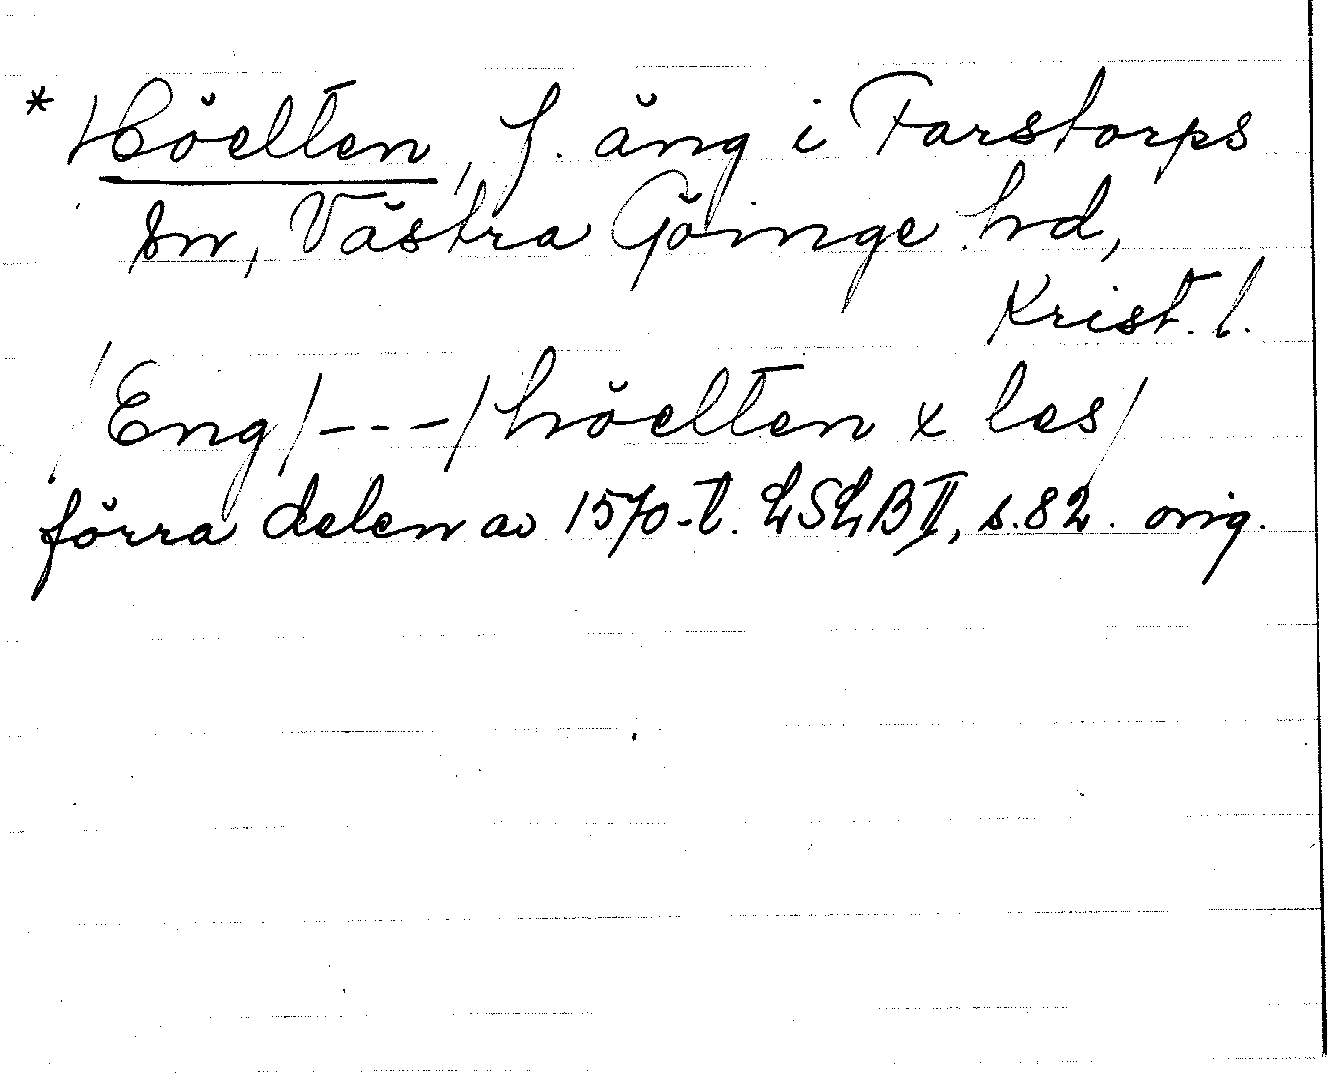 * Höelten, f. äng i Farstorps
sn, Västra Göinge hd,
Krist. l.
Eng /---/ höelten x les/
förra delen av 1570-t. LSLB II, s. 82. orig.